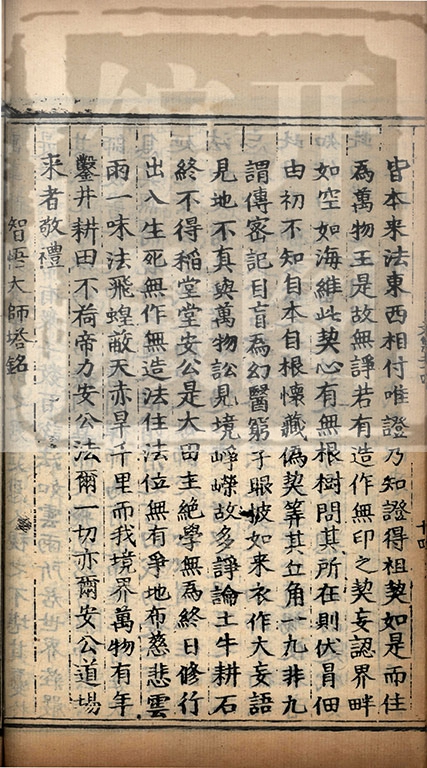 皆本来法東西相付唯證乃知證得祖契如是而住
為萬物王是故無諍若有造作無印之契妄認界畔
如空如海維此契心有無根樹問其所在則伏冒佃
由初不知自本自根懷藏偽契筭其立角一九非九
謂傳密記目盲為幻醫窮子眼披如来衣作大妄語
見地不真與萬物訟見境崢嶸故多諍論土牛耕石
終不得稲堂堂安公是大田主絶學無為終日修行
出入生死無作無造法住法位無有爭地布慈悲雲
雨一味法飛蝗蔽天赤旱千里而我境界萬物有年
鑿井耕田不荷帝力安公法爾一切亦爾安公道場
来者敬禮
智悟大師塔銘